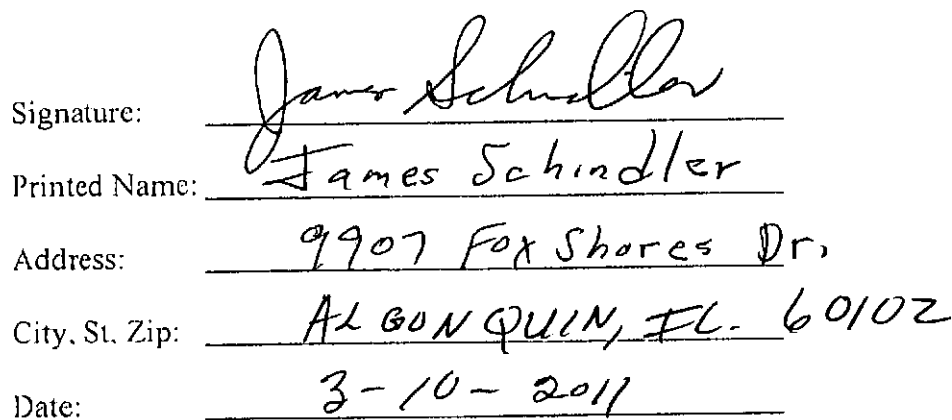 Signature: James Schindler
Printed Name: James Schindler
Address: 9907 Fox Shores Dr.
City, St. Zip: ALGONQUIN, IL. 60102
Date: 3-10-2011